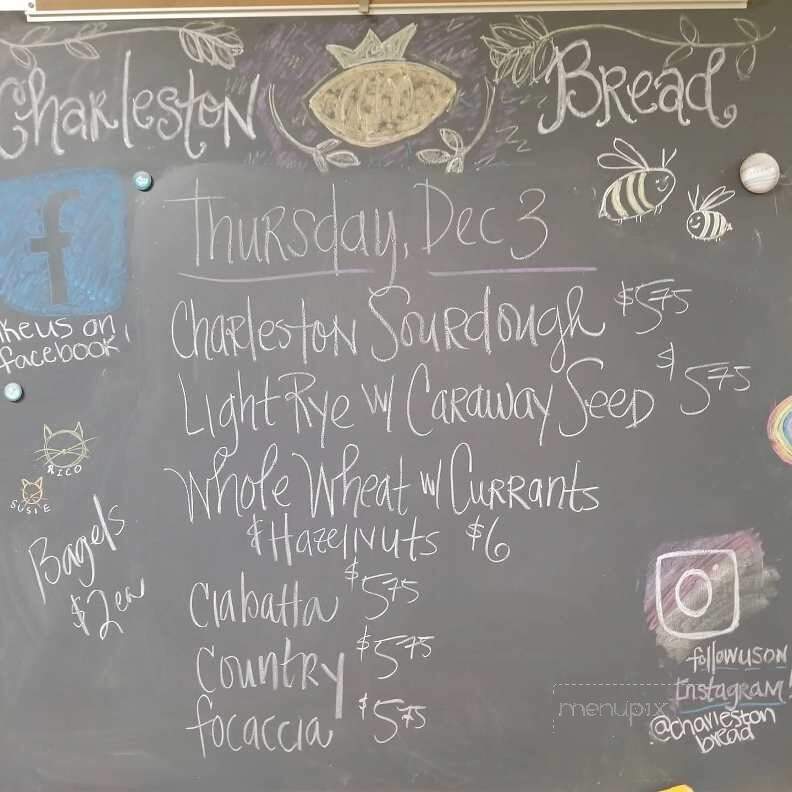 Charleston Bread
Thursday, Dec 3
Charleston Sourdough $5.75
Light Rye w/ Caraway Seed $5.75
Whole Wheat w/ Currants
& Hazelnuts $6
Ciabatta $5.75
Country $5.75
focaccia $5.75
f
ike us on
facebook!
RICO
SUSIE
Bagels
$2 ea
follow us on
Instagram!
@charleston
bread
menupix